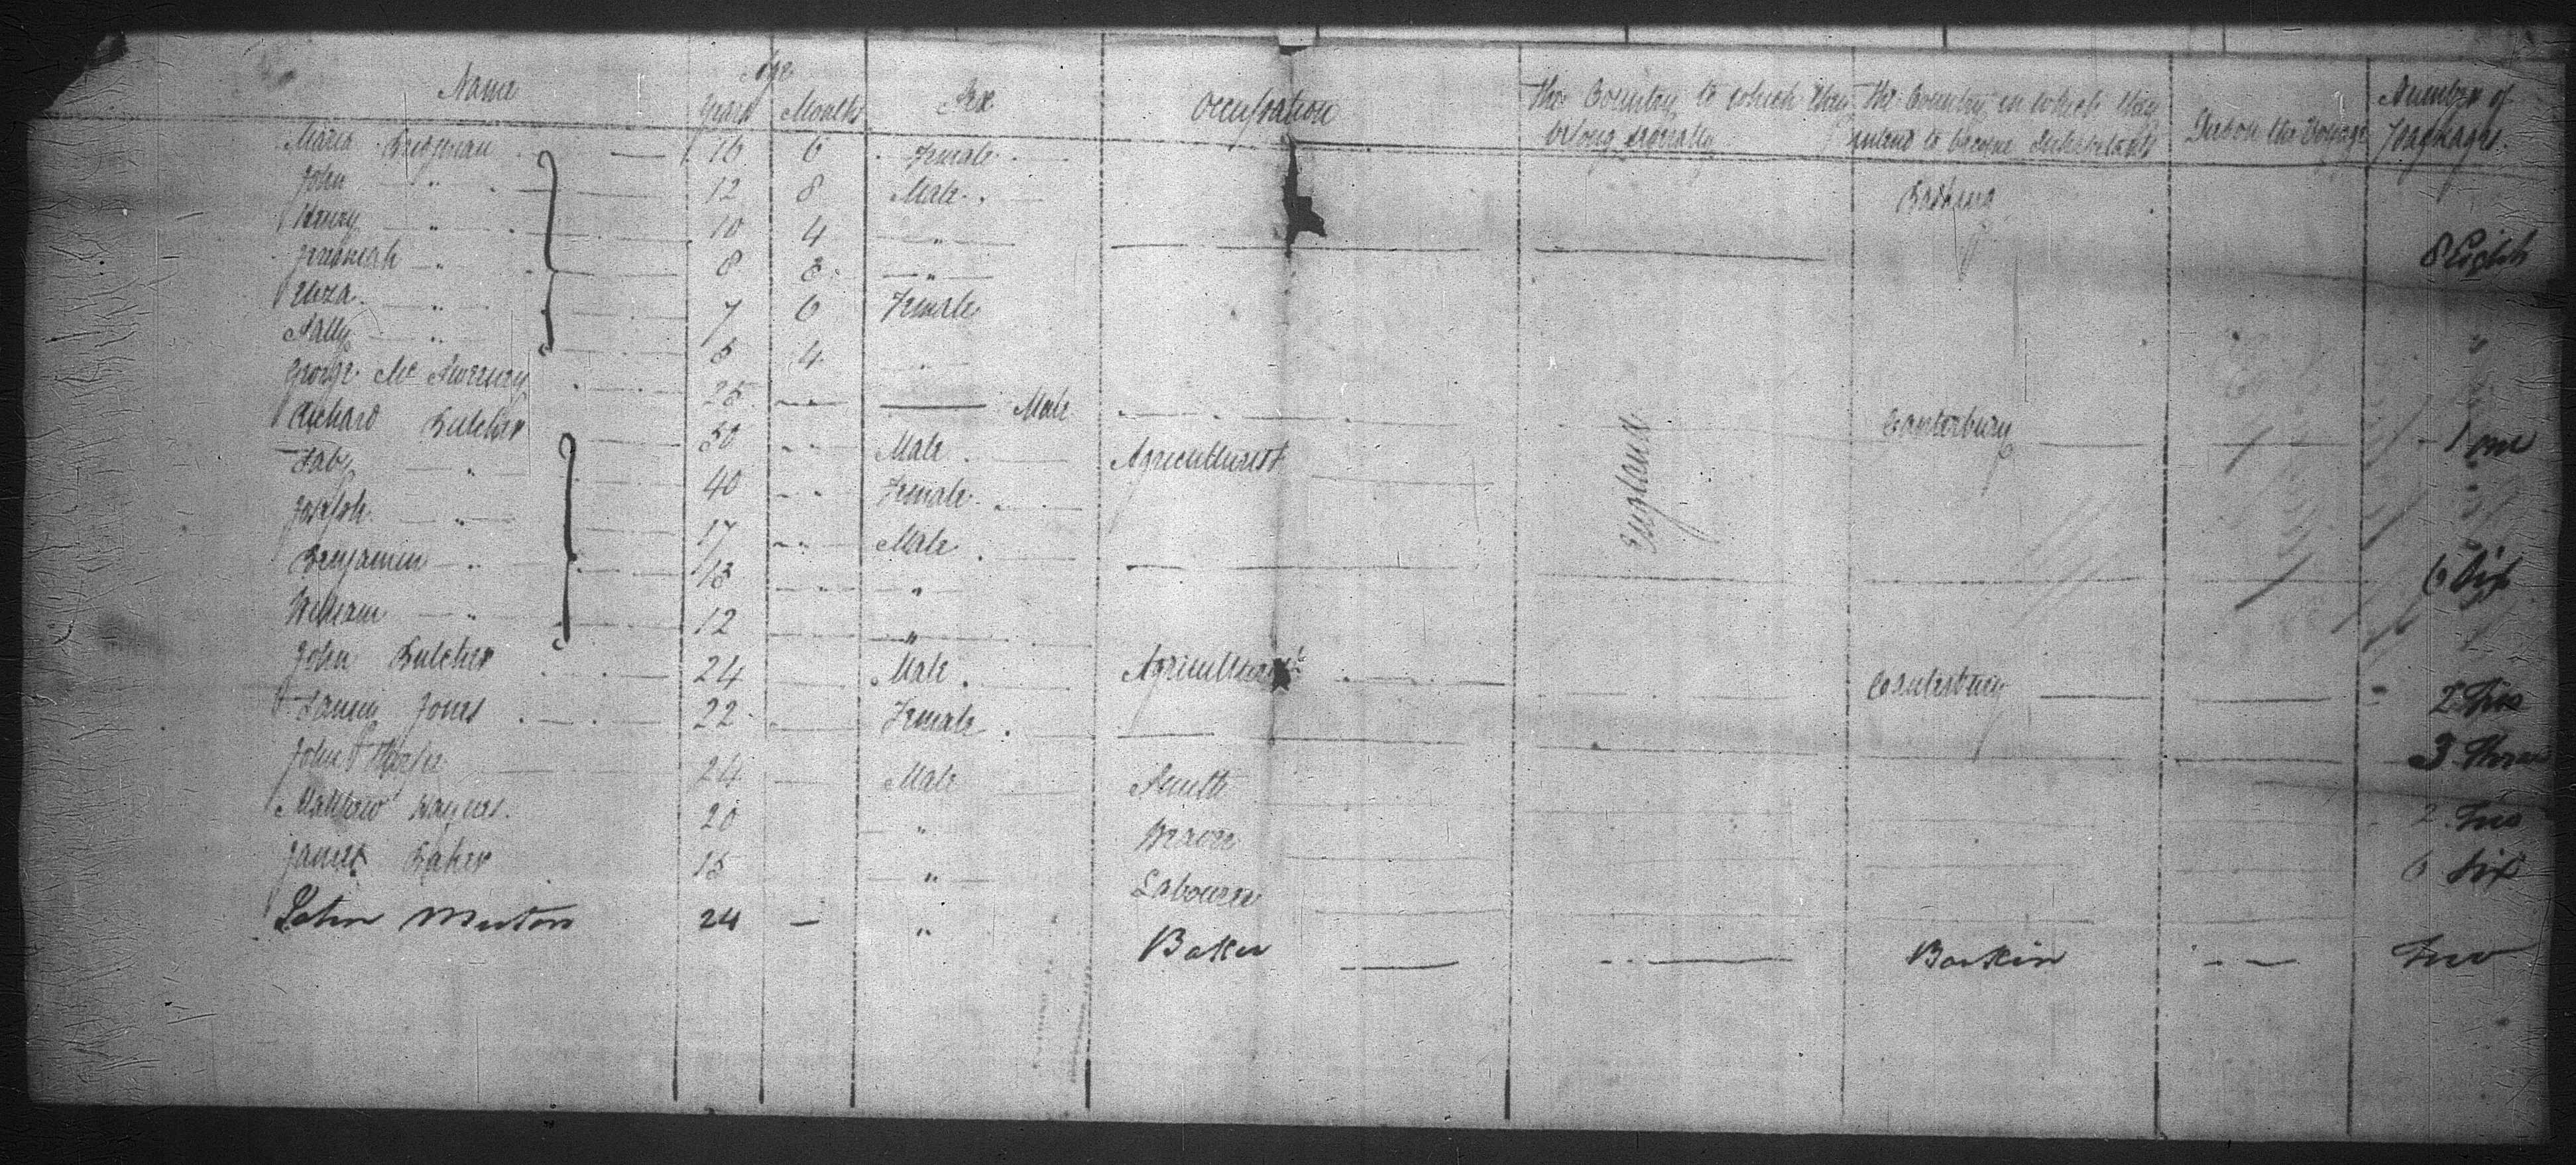 Name Age Years Months Sex Occupation The Country to which they belong severally The Country in which they intend to become Inhabitants Died on the Voyage Number of Packages
Maria Bridgman 16 6 Female
John " 12 8 Male
Henry " 10 4 "
Jeremiah " 8 8 " 8 Eight
Eliza " 7 6 Female
Sally " 5 4 "
George Mc 25 Male Canterbury 1 one
Richard Butcher 50 Male Agriculturist England
" 40 Female
Joseph " 17 Male
Benjamin " 15 " 6 Six
William " 12 "
John Butcher 24 Male Agriculturist Canterbury 2 Two
Jones 22 Female
John 24 Male Smith 3 Three
Matthew 20 " Weaver 2 Two
James Baker 15 " Labourer 6 Six
John 24 " Baker Two